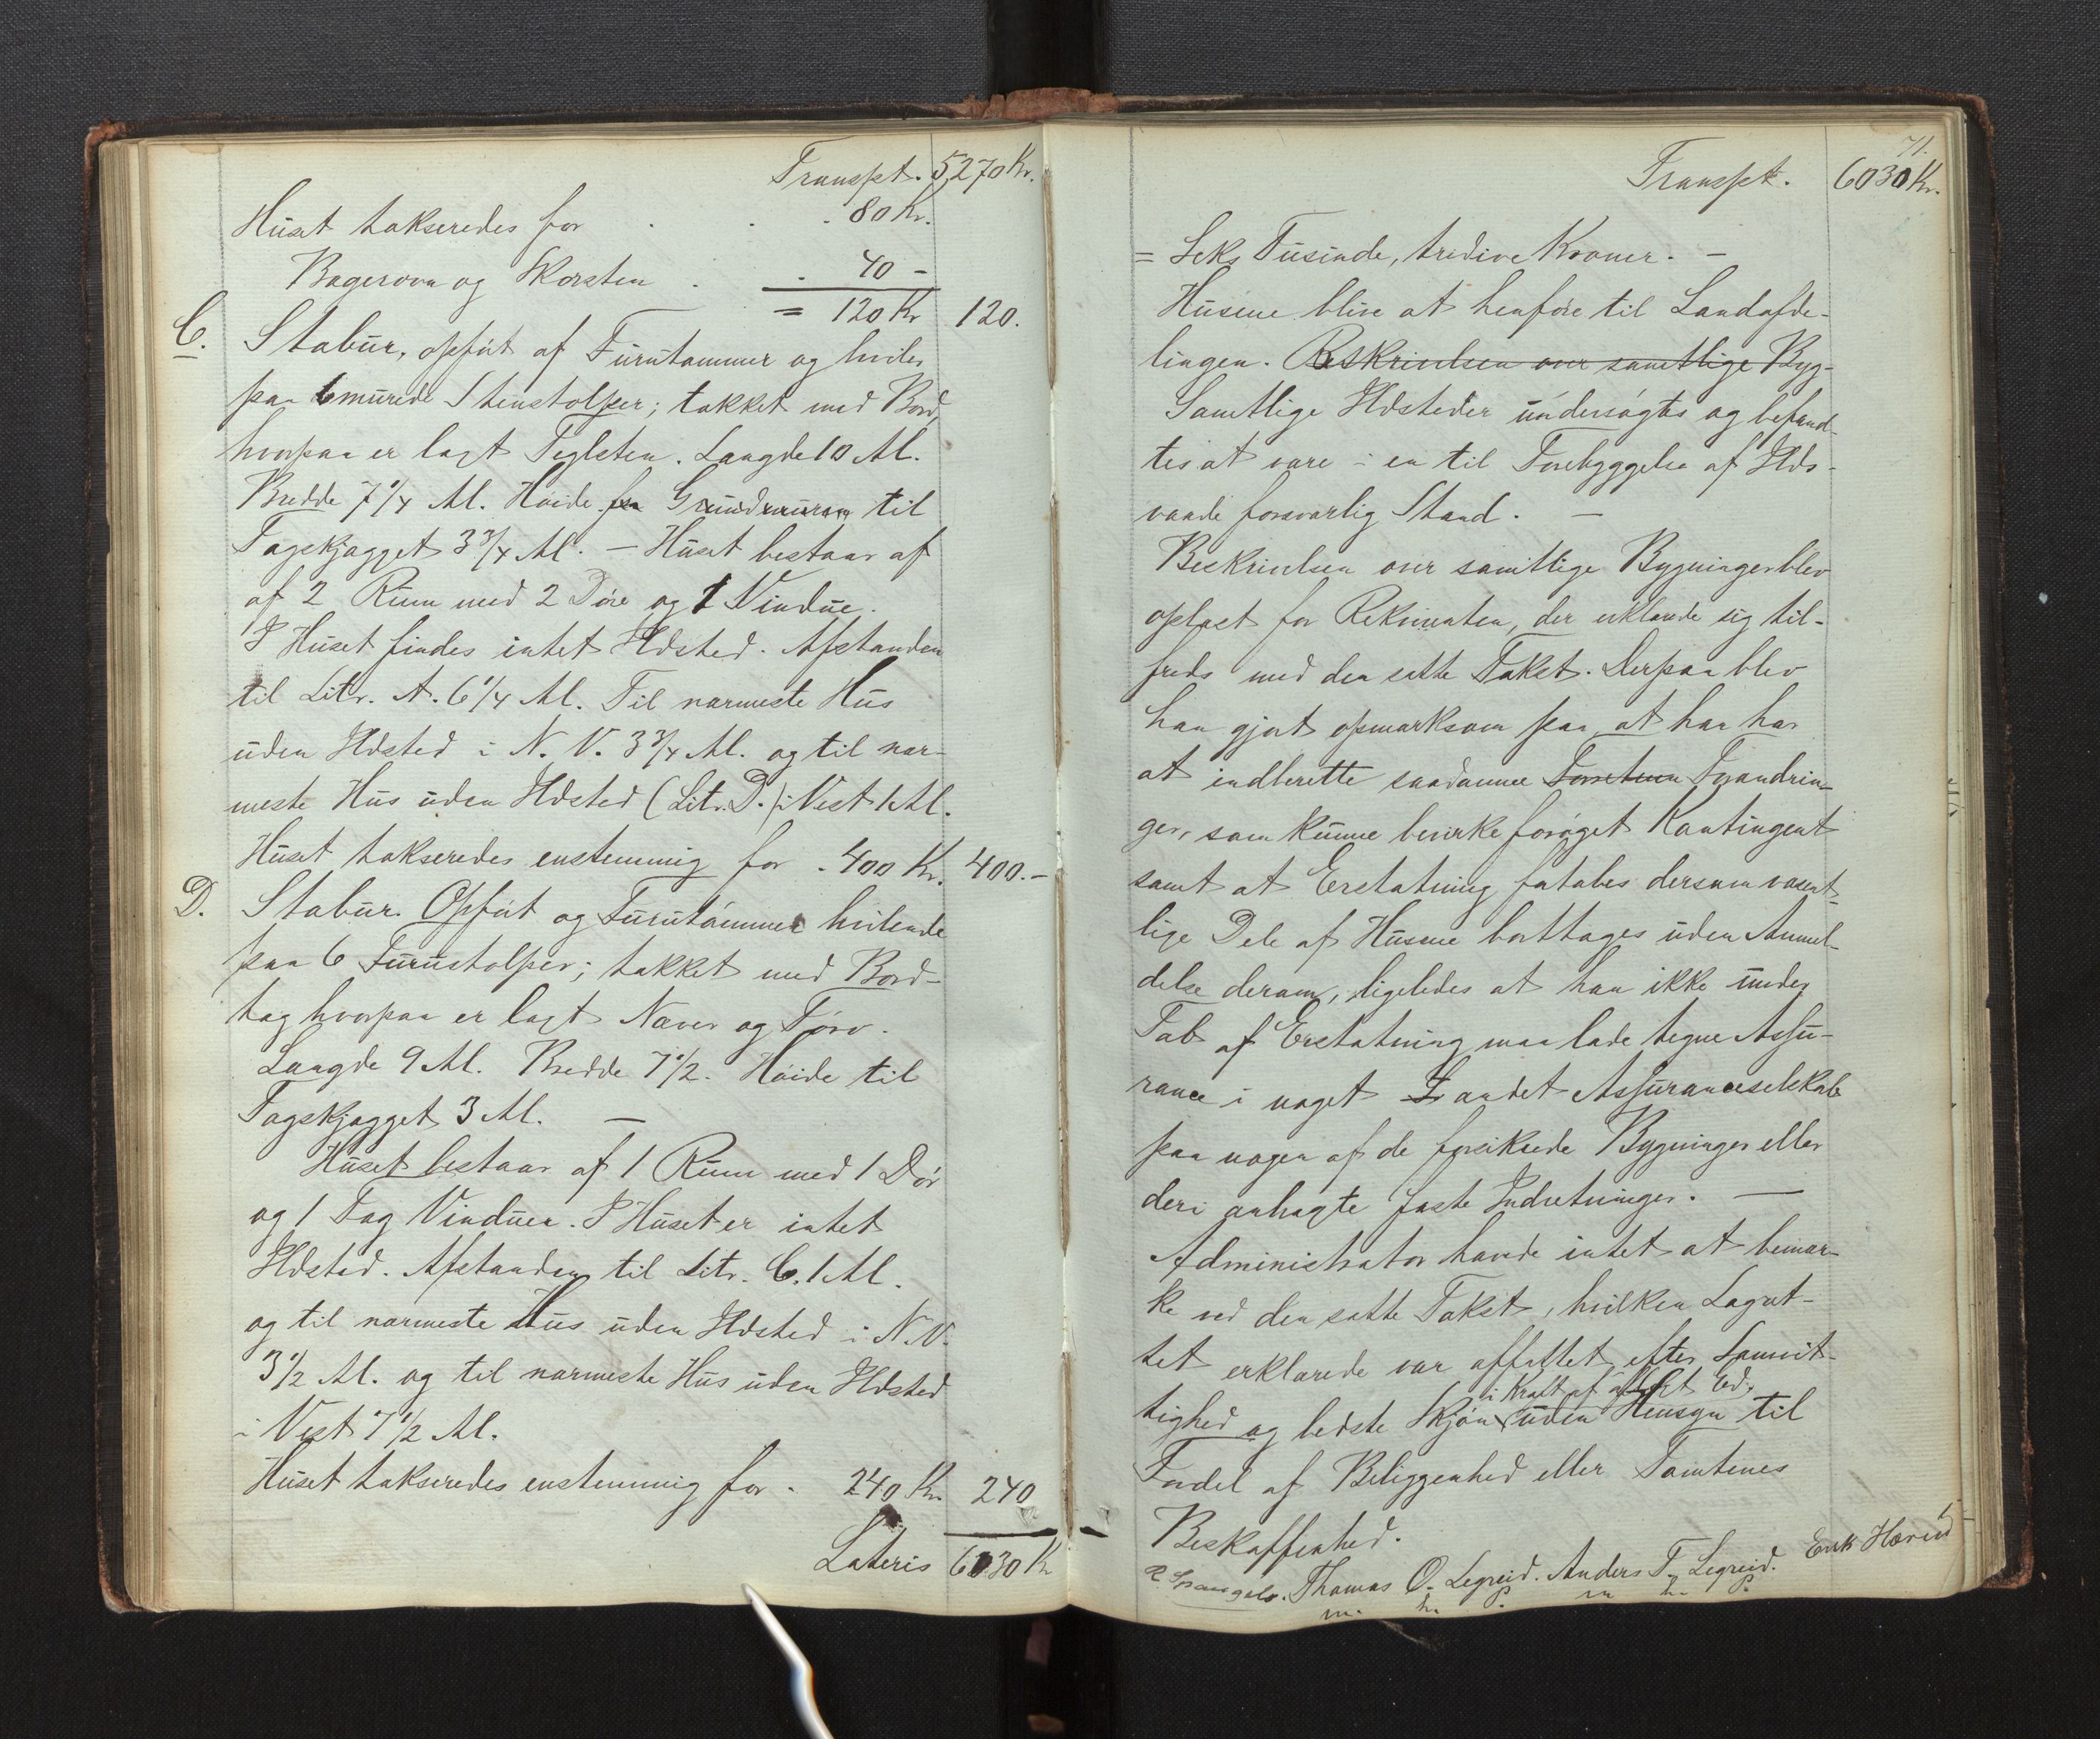 Transpt. 5270 Kr.
Huset takseredes for . . . 80 Kr.
Bagerovn og Skorsten . . 40 -
= 120 Kr 120.
C. Stabur, opført af Furutømmer og hviler
paa 6 murede Stenstolper; tækket med Bord,
hvorpaa er lagt Teglsten. Længde 10 Al.
Bredde 7 1/4 Al. Høide fra Grundmuren til
Tagskjægget 3 3/4 Al. — Huset bestaar af
af 2 Rum med 2 Døre og 1 Vindue.
I Huset findes intet Ildsted. Afstanden
til Litr. A. 6 1/4 Al. Til nærmeste Hus
uden Ildsted i N. V. 3 3/4 Al. og til nær-
meste Hus uden Ildsted (Litr. D.) i Vest 1 Al.
Huset takseredes enstemmig for . 400 Kr. 400.-
D. Stabur. Opført og Furutømmer hvilende
paa 6 Furustolper; tækket med Bord-
tag hvorpaa er lagt Næver og Tørv.
Længde 9 Al. Bredde 7 1/2. Høide til
Tagskjægget 3 Al. —
Huset bestaar af 1 Rum med 1 Dør
og 1 Fag Vinduer. I Huset er intet
Ildsted. Afstanden til Litr. C. 1 Al.
og til nærmeste Hus uden Ildsted i N.V.
3 1/2 Al. og til nærmeste Hus uden Ildsted
i Vest 7 1/2 Al.
Huset takseredes enstemmig for . 240 Kr. 240
Lateris 6030 Kr
71.
Transpt. 6030 Kr.
= Seks Tusinde, tredive Kroner. —
Husene blive at henføre til Landafde-
lingen. Beskrivelsen over samtlige Byg-
Samtlige Ildsteder undersøgtes og befand-
tes at være i en til Forebyggelse af Ilds-
vaade forsvarlig Stand. —
Beskrivelsen over samtlige Bygninger blev
oplæst for Rekvirenten, der erklærede sig til-
freds med den satte Takst. Derpaa blev
han gjort opmærksom paa at han har
at indberette saadanne Forandrin-
ger, som kunne bevirke forøget Kontingent
samt at Erstatning fortabes dersom væsent-
lige Dele af Husene borttages uden Anmel-
delse derom, ligeledes at han ikke under
Tab af Erstatning maa lade tegne Assu-
rance i noget andet Assuranceselskab
paa nogen af de forsikrede Bygninger eller
deri anbragte faste Indretninger. —
Administrator havde intet at bemær-
ke ved den satte Takst, hvilken Lagret-
tet erklærede var affattet efter Samvit-
i Kraft af aflagt Ed,
tighed og bedste Skjøn uden Hensyn til
Fordel af Beliggenhed eller Tomtenes
Beskaffenhed.
Thomas O. Legreid. Anders T. Legreid. Erik
m. h. P. m h. P.